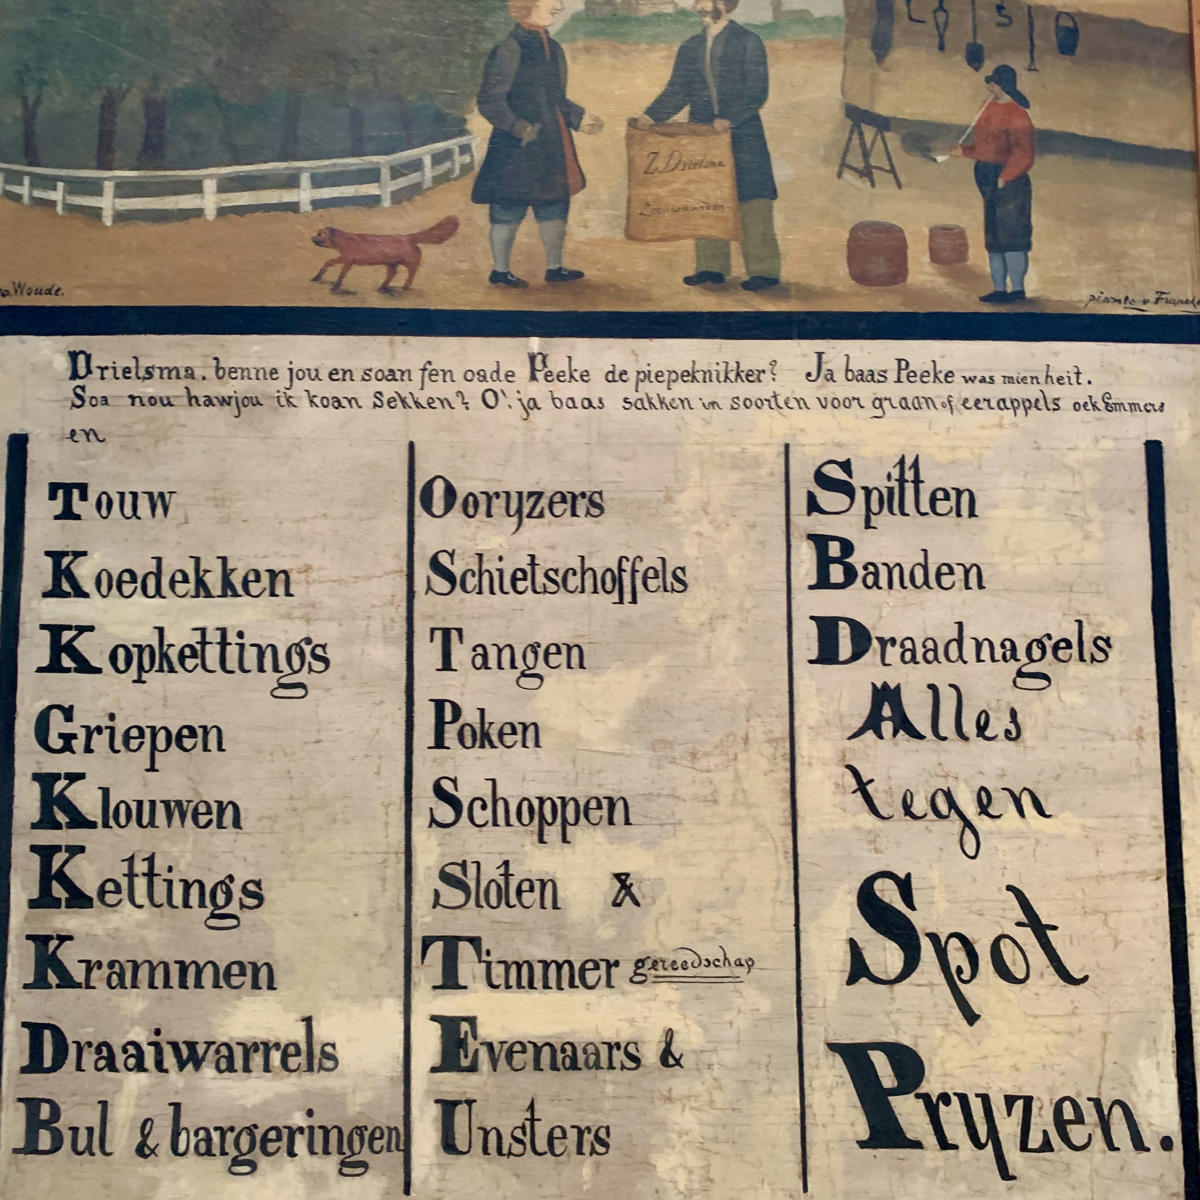 Z. Drielsma
Leeuwarden
Woude.
pinmto v Franek
Drielsma. benne jou en soan fen oade Peeke de piepeknikker? Ja baas Peeke was mien heit.
Soa nou hawjou ik koan Sekken? O'. ja baas sakken in soorten voor graan of eerappels oek Emmers
en
Touw
Koedekken
Kopkettings
Griepen
Klouwen
Kettings
Krammen
Draaiwarrels
Bul & bargeringen
Ooryzers
Schietschoffels
Tangen
Poken
Schoppen
Sloten &
Timmer gereedschap
Evenaars &
Unsters
Spitten
Banden
Draadnagels
Alles
tegen
Spot
Pryzen.